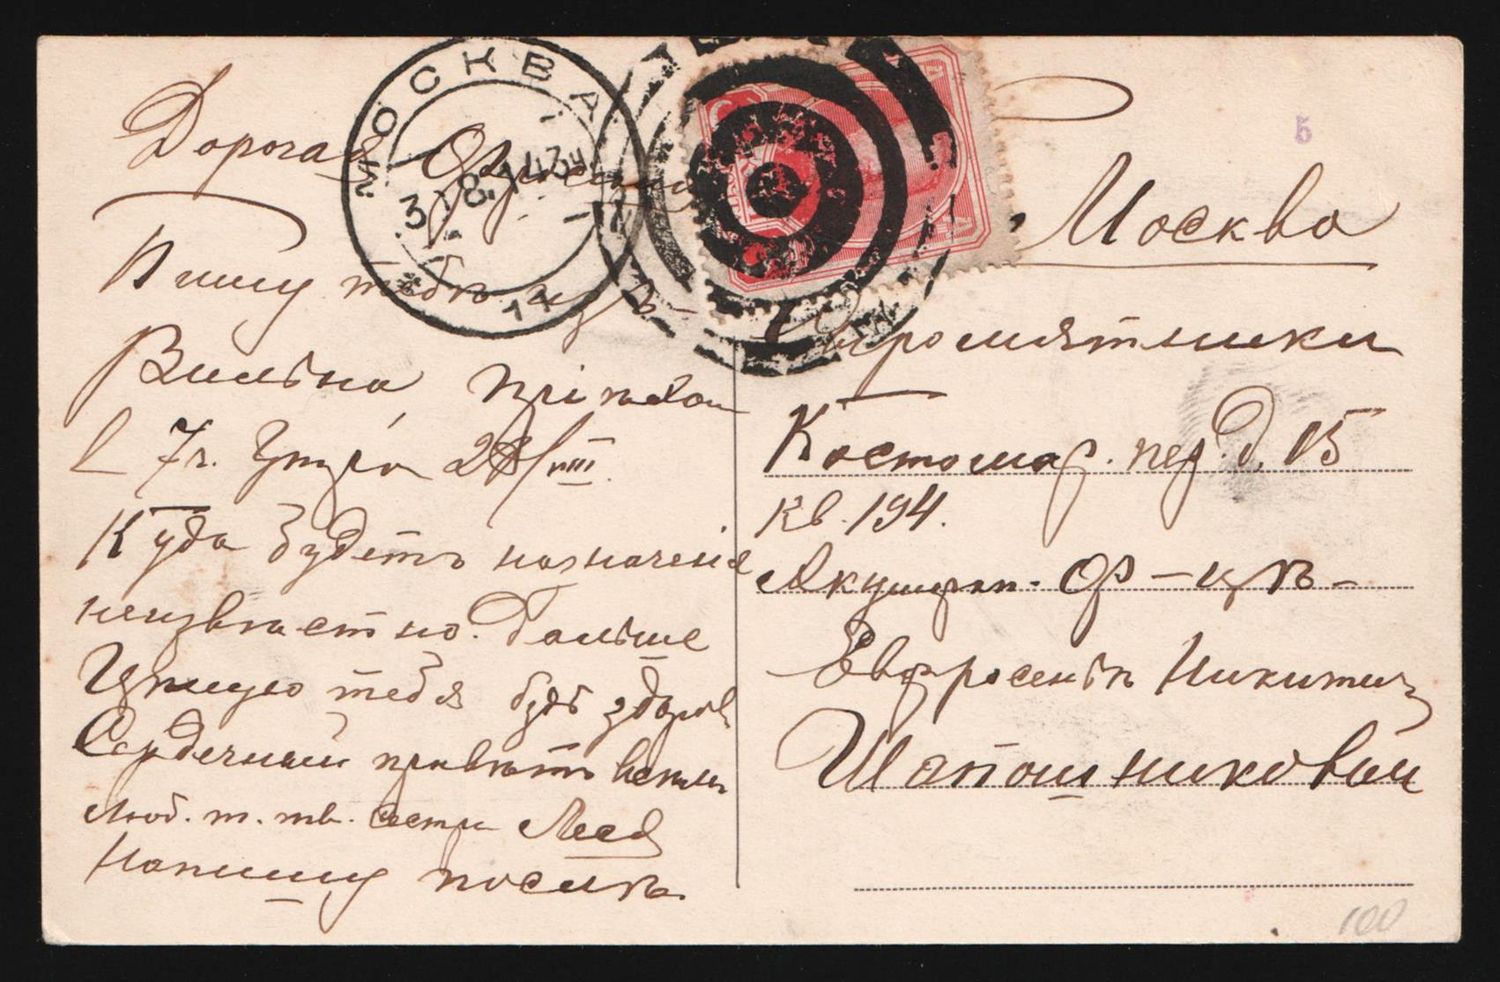 МОСКВА
3 8 14
14
5
Дорогая Фрося
Пишу тебѣ изъ
Вильна пріѣхали
в 7 ч. Утра 28/VIII.
Куда будетъ назначенія
неизвѣстно. Дальше
Цѣлую тебя будь здорова
Сердечный привѣтъ всѣмъ
люб. т. тв. сестра
Напишу послѣ.
Москва
Сыромятники
Костомар. пер. д. 15
кв. 194.
Акушерк. Ф-цѣ-
Евфросеньѣ Никитич
Шапошниковой
100